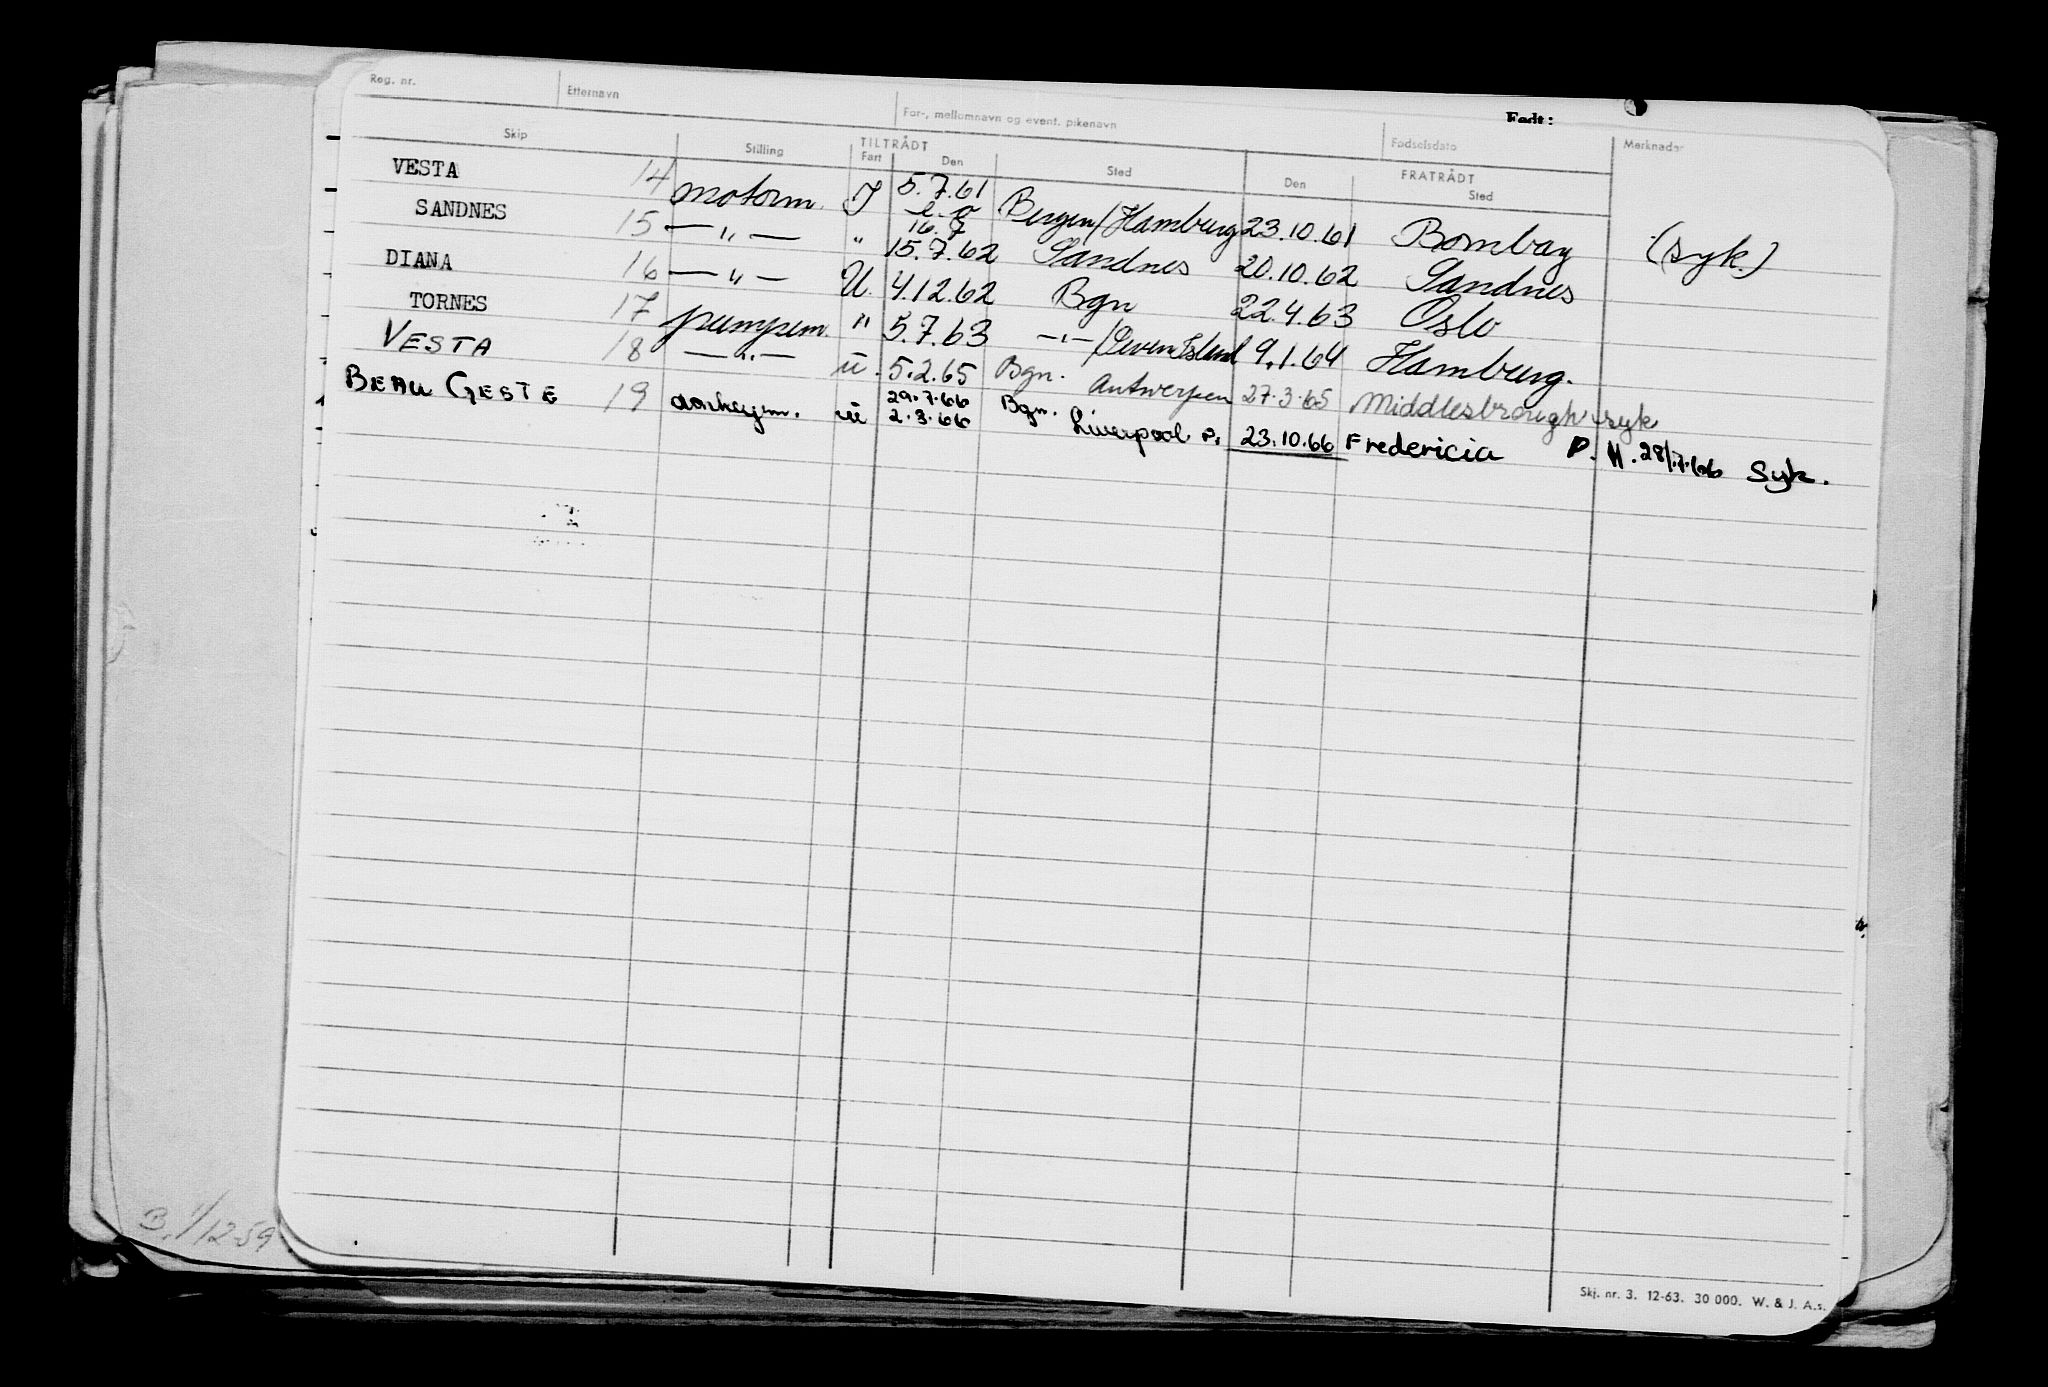 Reg. nr. Etternavn For-, mellomnavn og event. pikenavn Fødselsdato Født:
Skip Stilling TILTRÅDT FRATRÅDT Merknader
Fart Den Sted Den Sted
VESTA 14 motorm. I 5.7.61 16.7 Bergen/Hamburg 23.10.61 Bombay (syk.)
SANDNES 15 — " — " 15.7.62 Sandnes 20.10.62 Sandnes
DIANA 16 — " — U. 4.12.62 Bgn 22.4.63 Oslo
TORNES 17 pumpem. " 5.7.63 — " —/Seven Island 9.1.64 Hamburg.
VESTA 18 — " — u. 5.2.65 Bgn. Antwerpen 27.3.65 Middlesbrough syk
BEAU GESTE 19 u 29.7.66 2.8.66 Bgn. Liverpool P. 23.10.66 Fredericia P. H. 28/7.66 Syk.
B. 1/12-59
Skj. nr. 3. 12-63. 30 000. W. & J. A.s.